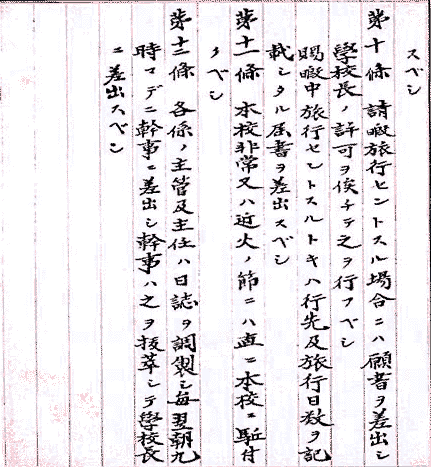 スベシ
第十條 請暇旅行セントスル場合ニハ願書ヲ差出シ
學校長ノ許可ヲ俟チテ之ヲ行フベシ
賜暇中旅行セントスルトキハ行先及旅行日数ヲ記
載シタル届書ヲ差出スベシ
第十一條 本校非常又ハ近火ノ節ニハ直ニ本校ニ駈付
クベシ
第十二條 各係ノ主管及主任ハ日誌ヲ調製シ毎翌朝九
時マデニ幹事ニ差出シ幹事ハ之ヲ抜萃シテ學校長
ニ差出スベシ